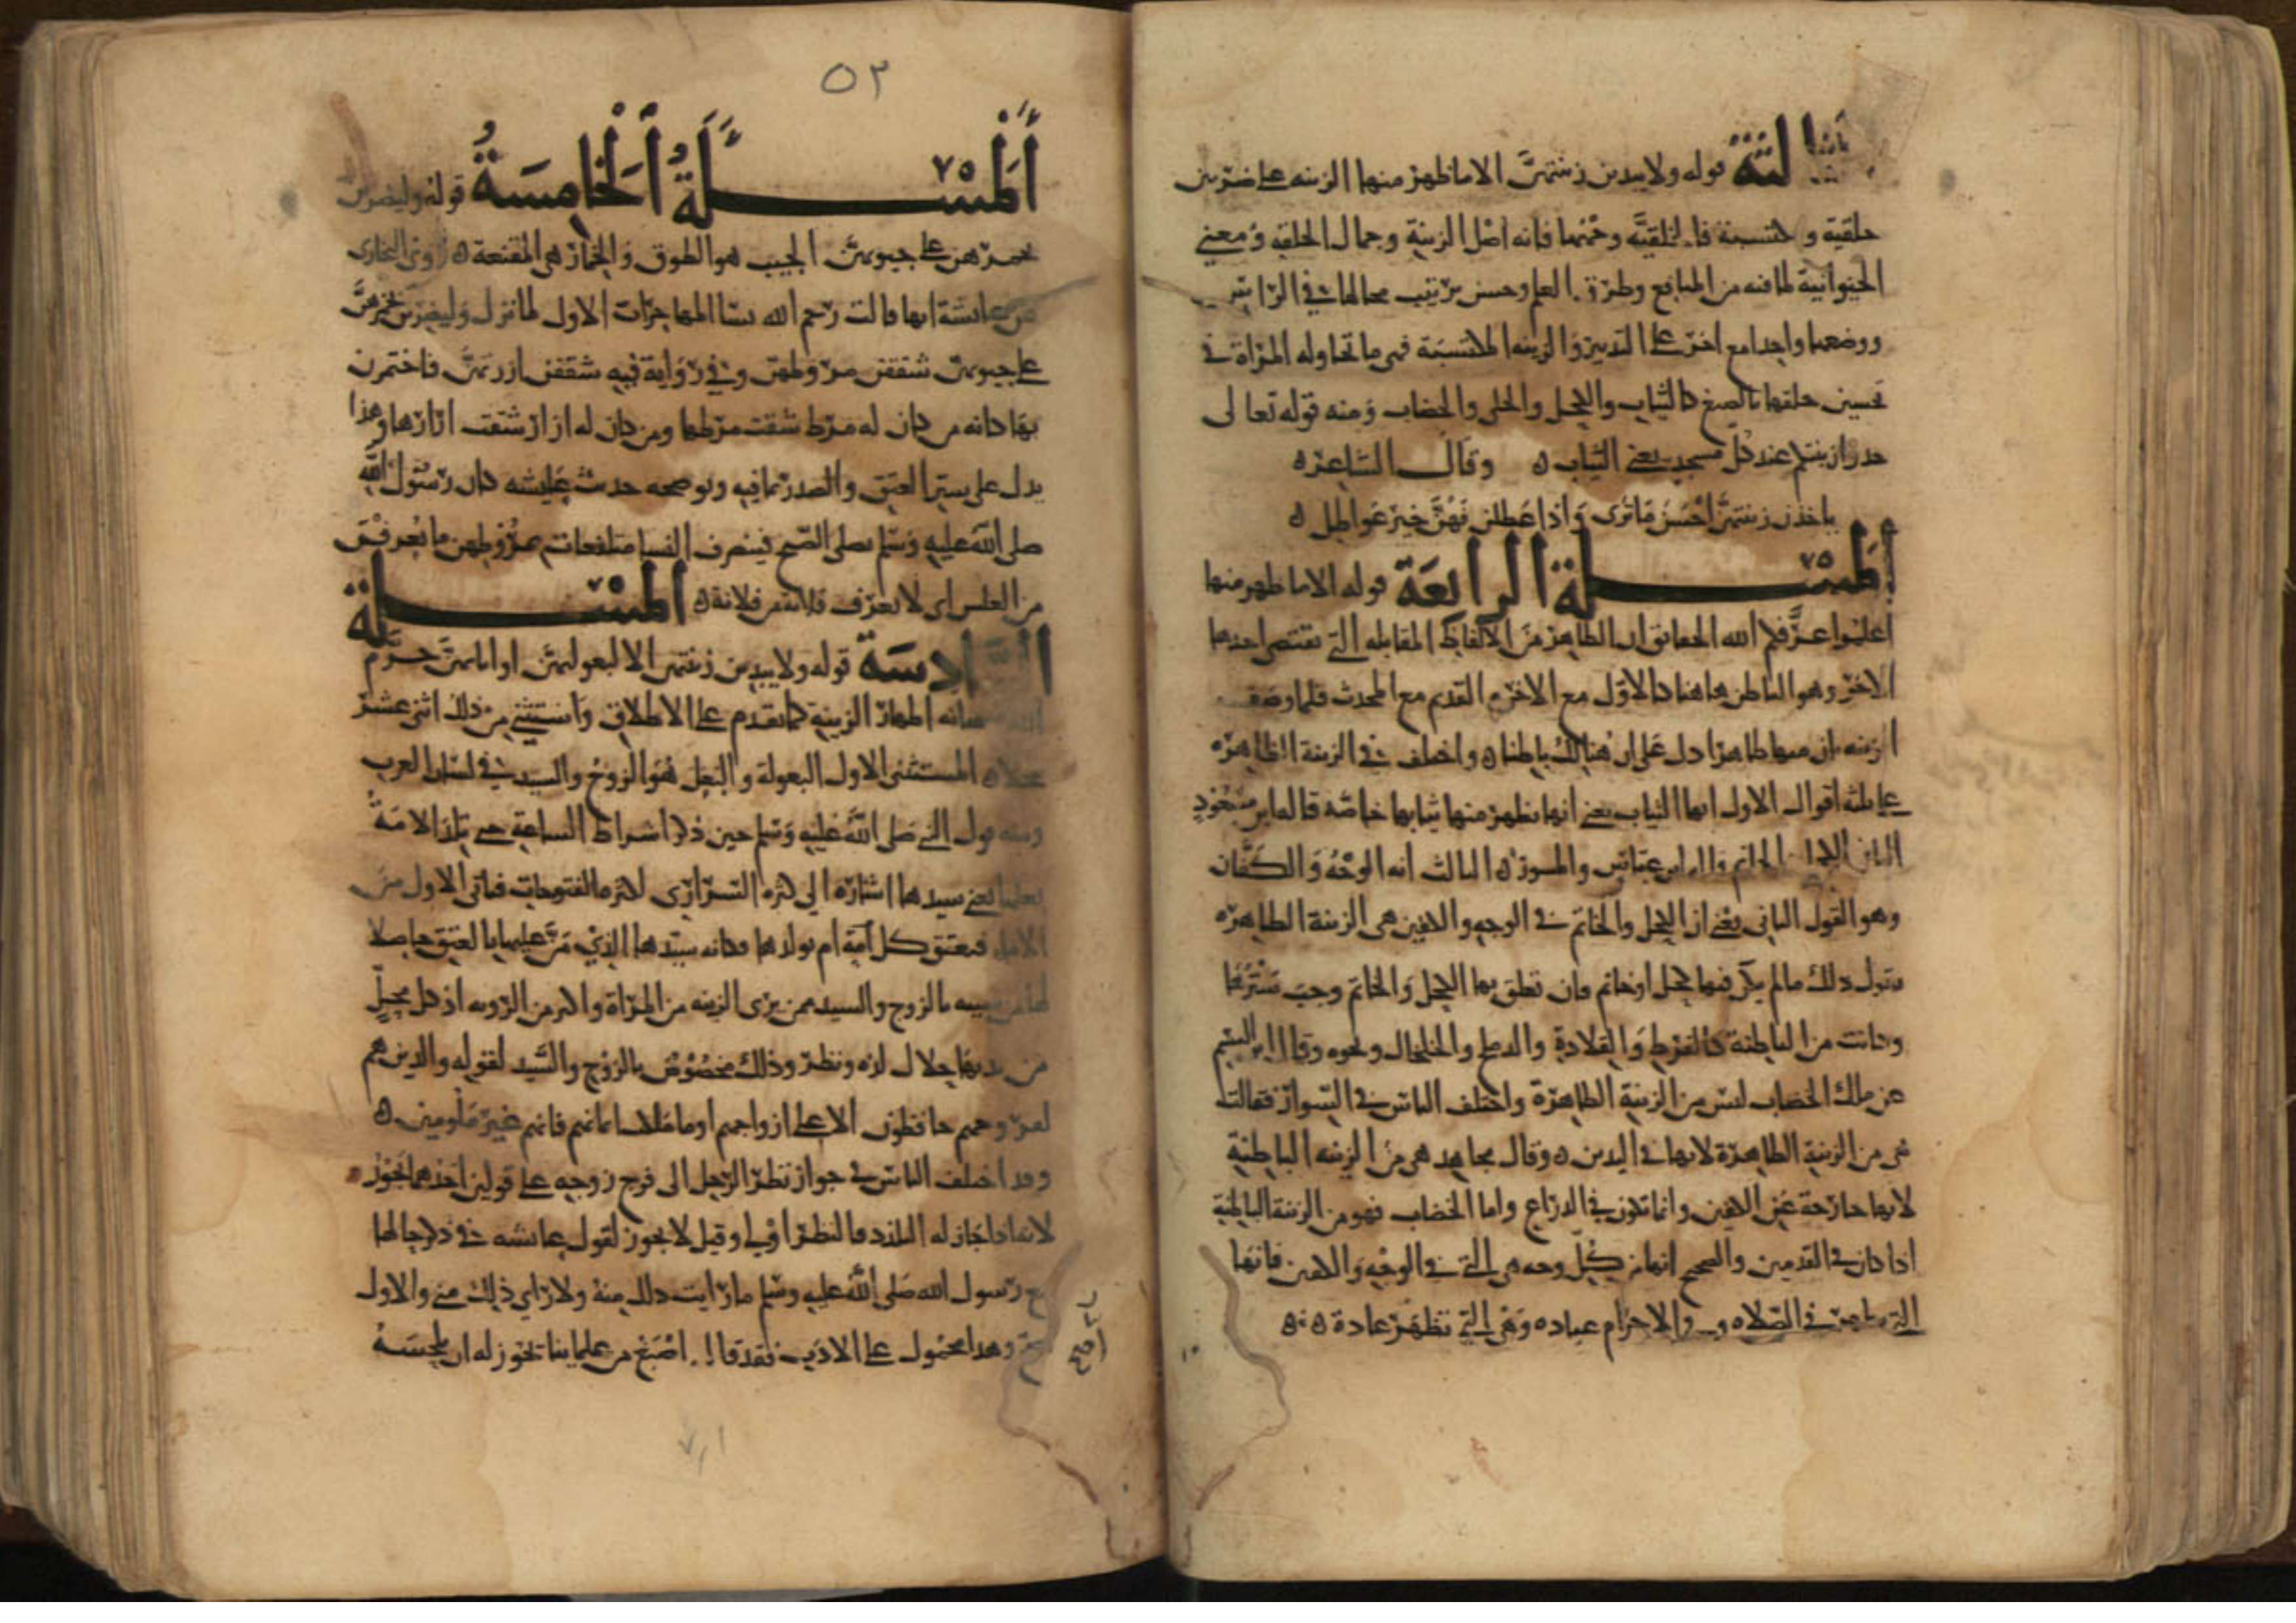 الثالثة قوله ولا يبدين زينتهن الا ما ظهر منها الزينه على ضربين
خلقية و مكتسبة فالخلقيّة وجهها فانه اصْل الزينة وجمال الخلقه ومعنى
الحيوانية لما فيه من المنافع وطرق العلم وحسن ترتيب محالها في الراس
ووضعها واحدا مع اخر على التدبير والزينه المكتسبة فهى ما تحاوله المرْاة فى
تحسين خلقها بالصبغ كالثياب والكحل والحلى والخضاب ومنه قوله تعالى
خذوا زينتكم عند كل مسجد يعنى الثياب ه وقال الشاعر ه
ياخذن زينتهن احْسَنَ مَا ترى وَاذا عَطلن فَهُنَّ خير عَواطل ه
المسْئلة الرابعَة قوله الا ما ظهر منها
اعلموا عرّفكم الله الحقائق ان الظاهر من الالفاظ المقابله التى تقتضى احدها
الاخر وهو الباطن هاهنا كالاوّل مع الاخر والقديم مع المحدث فلما وصف
الزينه بان منها ظاهرا دل على ان هُنالك باطنا ه واختلف في الزينة الظاهره
على ثلثه اقوال الاول انها الثياب يعنى انها يظهر منها ثيابها خاصّه قاله ابن مسْعُودٍ
الثانى الكحل والخاتم قاله ابن عبّاس والمسور ه الثالث انه الوجْهُ وَالكَفّان
وهو القول الثانى يعْنى ان الكحل والخاتم فى الوجه والكفين هى الزينة الظاهره
يقول ذلك ما لم يكن فيها كحل او خاتم فان تعلق بها الكحل وَالخاتم وجبَ سَتْرُهَا
وكانت من الباطنة كالقرط وَالقلادة والدملج والخلخال ونحوه وقال ابن القسم
عن ملك الخضاب ليس من الزينة الظاهرة واختلف الناس فى السّوار فقالت
هى من الزينة الظاهرة لانها فى اليدين ه وقال مجاهد هى من الزينه الباطنة
لانها خارجة عَن الكفين وانما تكون فى الذراع واما الخضاب فهو من الزينة الباطنة
اذا كان فى القدمين والصحيح انها من كلّ وجه هى التى فى الوجْه وَالكفين فانها
التى تظهر فى الصّلاه و والاحرام عباده وهْى التى تظهَر عادة ه
٥٣
المسْئلةُ الخامِسَةُ قوله وليضربن
بخمرهن على جيوبهنّ الجيب هو الطوق وَالخمار هى المقنعة ه روى البخارى
عن عائشة انها قالت رحم الله نسا المهاجرات الاول لما نزل وَليضربن بخمرهنّ
على جيوبهنّ شققن مروطهن وفى روَاية فيه شققن ازرهنّ فاختمرن
بهَا كانه من كان له مرط شقت مرطها ومن كان له ازار شقت ازارها وهذا
يدل على ستر العنق والصدر بما فيه ويوضحه حديث عايشه كان رسُول الله
صلى الله عليه وَسَلم يصلى الصّبح فينصرف النسا متلفعات بمرُوطهن ما يُعرفن
من الغلس اى لا يعرف فلانة من فلانة ه المسْئلة
السّادسَة قوله ولا يبدين زينتهن الا لبعولتهن او ابائهنّ حرّم
الله سبحانه اظهار الزينة كما تقدم على الاطلاق وَاستثنى من ذلك اثنى عشر
محلا ه المستثنى الاول البعولة والبعل هُوَ الزوجُ والسيد فى لسَان العرب
ومنه قول النبى صَلى الله عَليه وَسَلم حين ذكر اشراط الساعة حتى تلد الامَةُ
بعلها يعنى سيدها اشاره الى كثره السّرارى لكثره الفتوحات فياتى الاول من
الاما فتعتق كل امَة ام بولدها فكانه سيّدها الذِى مَنَّ عليها بالعتق حاصلا
لها من سببه فالزوج والسيد ممن يرى الزينه من المرْاة واكثر من الزينه اذ كل محلّ
من بدنها حلال لذه ونظر وذلك مخصُوصٌ بالزوْج والسَّيد لقوله والذين هم
لفروجهم حافظون الا على ازواجهم او ما ملكت ايمانهم فانهم غير مَلومين ه
وقد اختلف الناسُ فى جواز نظر الرّجل الى فرج زوجه على قولين احَدهما يجوز
لانه اذا جَاز له التلذذ فالنظر اوْلى وقيل لا يجوز لقول عائشه فى ذكر حالها
مع رَسول الله صَلى الله عليه وسَلم ما رَايت ذلك منهُ ولا رَاى ذلك منى والاول
اصحّ وهذا محمُول على الادَب فقد قال اصْبَغ من علماينا يجوز له ان يلحسَهُ